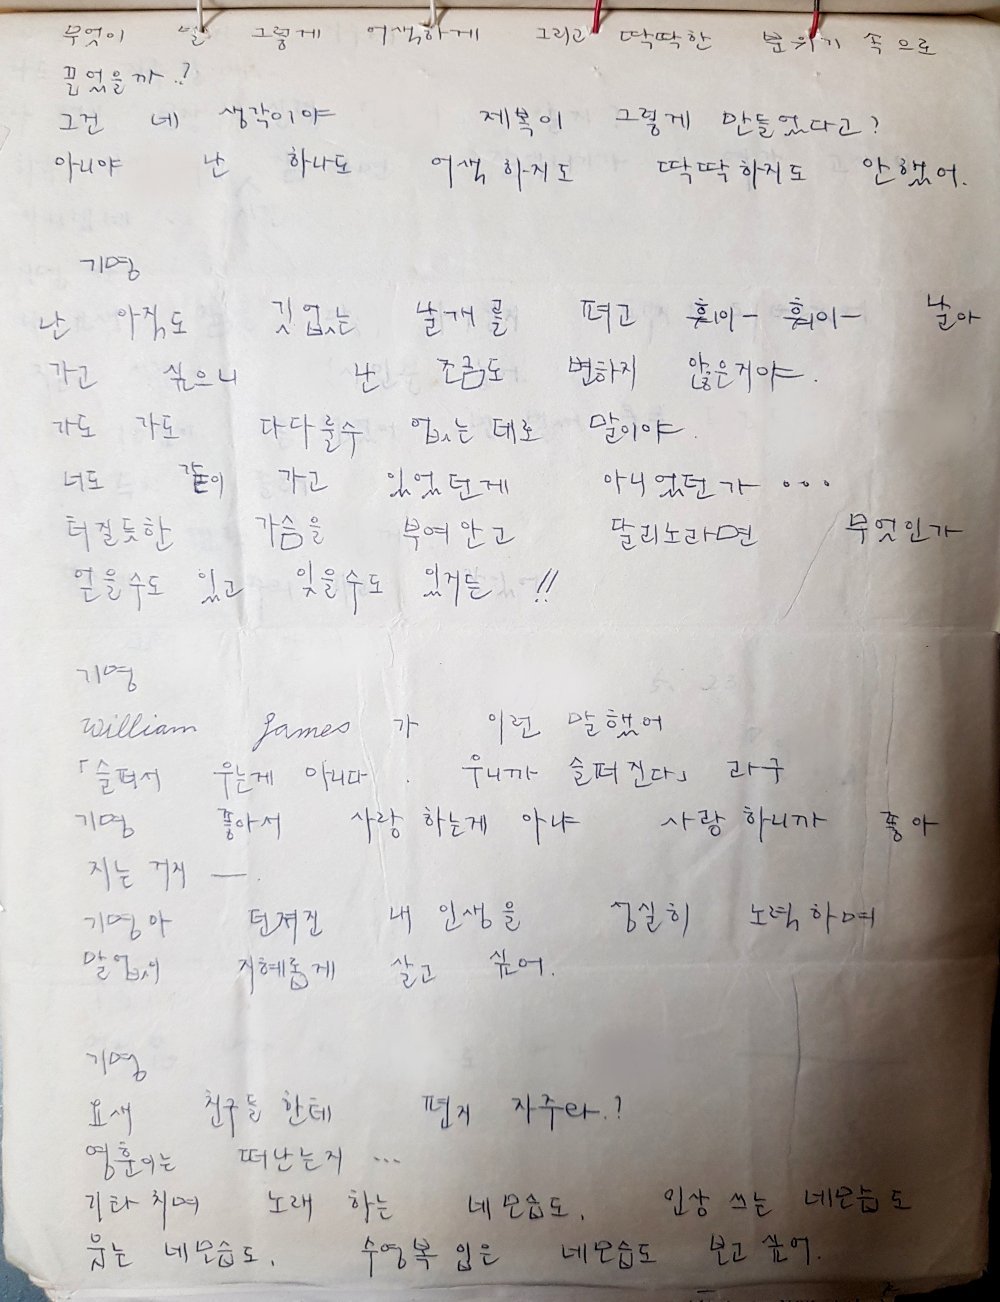 무엇이 널 그렇게 어색하게 그리고 딱딱한 분위기 속으로
끌었을까.?
그건 네 생각이야 제복이 그렇게 만들었다고?
아니야 난 하나도 어색하지도 딱딱하지도 안했어.
기영
난 아직도 깃없는 날개를 펴고 훨이- 훨이- 날아
가고 싶으니 난 조금도 변하지 않은거야.
가도 가도 다다를수 없는데로 말이야.
너도 같이 가고 있었던게 아니었던가 ...
터질듯한 가슴을 부여안고 달리노라면 무엇인가
얻을수도 있고 잊을수도 있거든!!
기영
William James 가 이런 말했어
「슬퍼서 우는게 아니다. 우니까 슬퍼진다」 라구
기영 좋아서 사랑하는게 아냐 사랑하니까 좋아
지는 거지 —.
기영아 던져진 내 인생을 성실히 노력하며
말없이 지혜롭게 살고 싶어.
기영
요새 친구들한테 편지 자주와.?
영훈이는 떠난는지 ...
기타치며 노래 하는 네모습도, 인상 쓰는 네모습도
웃는 네모습도, 수영복 입은 네모습도 보고싶어.